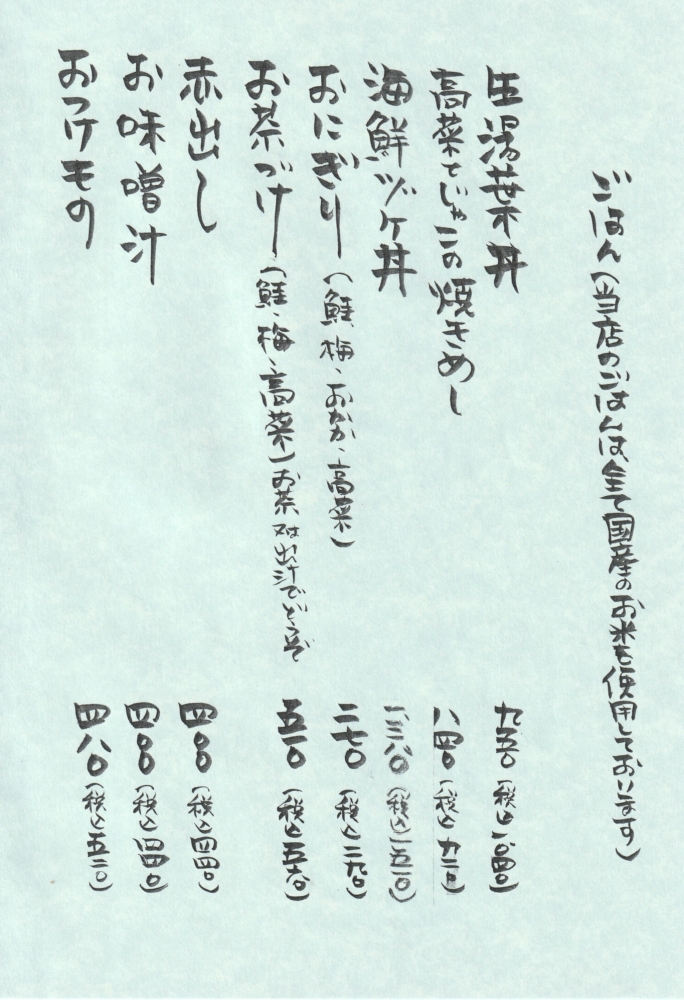 ごはん（当店のごはんは、全て国産のお米を使用しております）
生湯葉丼 九五〇（税込一、〇四〇）
高菜とじゃこの焼きめし 八四〇（税込九二〇）
海鮮ヅケ丼 一、三八〇（税込一五一〇）
おにぎり（鮭、梅、おかか、高菜） 二七〇（税込二九〇）
お茶づけ（鮭、梅、高菜）お茶又は出汁でどうぞ 五一〇（税込五六〇）
赤出し 四〇〇（税込四四〇）
お味噌汁 四〇〇（税込四四〇）
おつけもの 四八〇（税込五二〇）